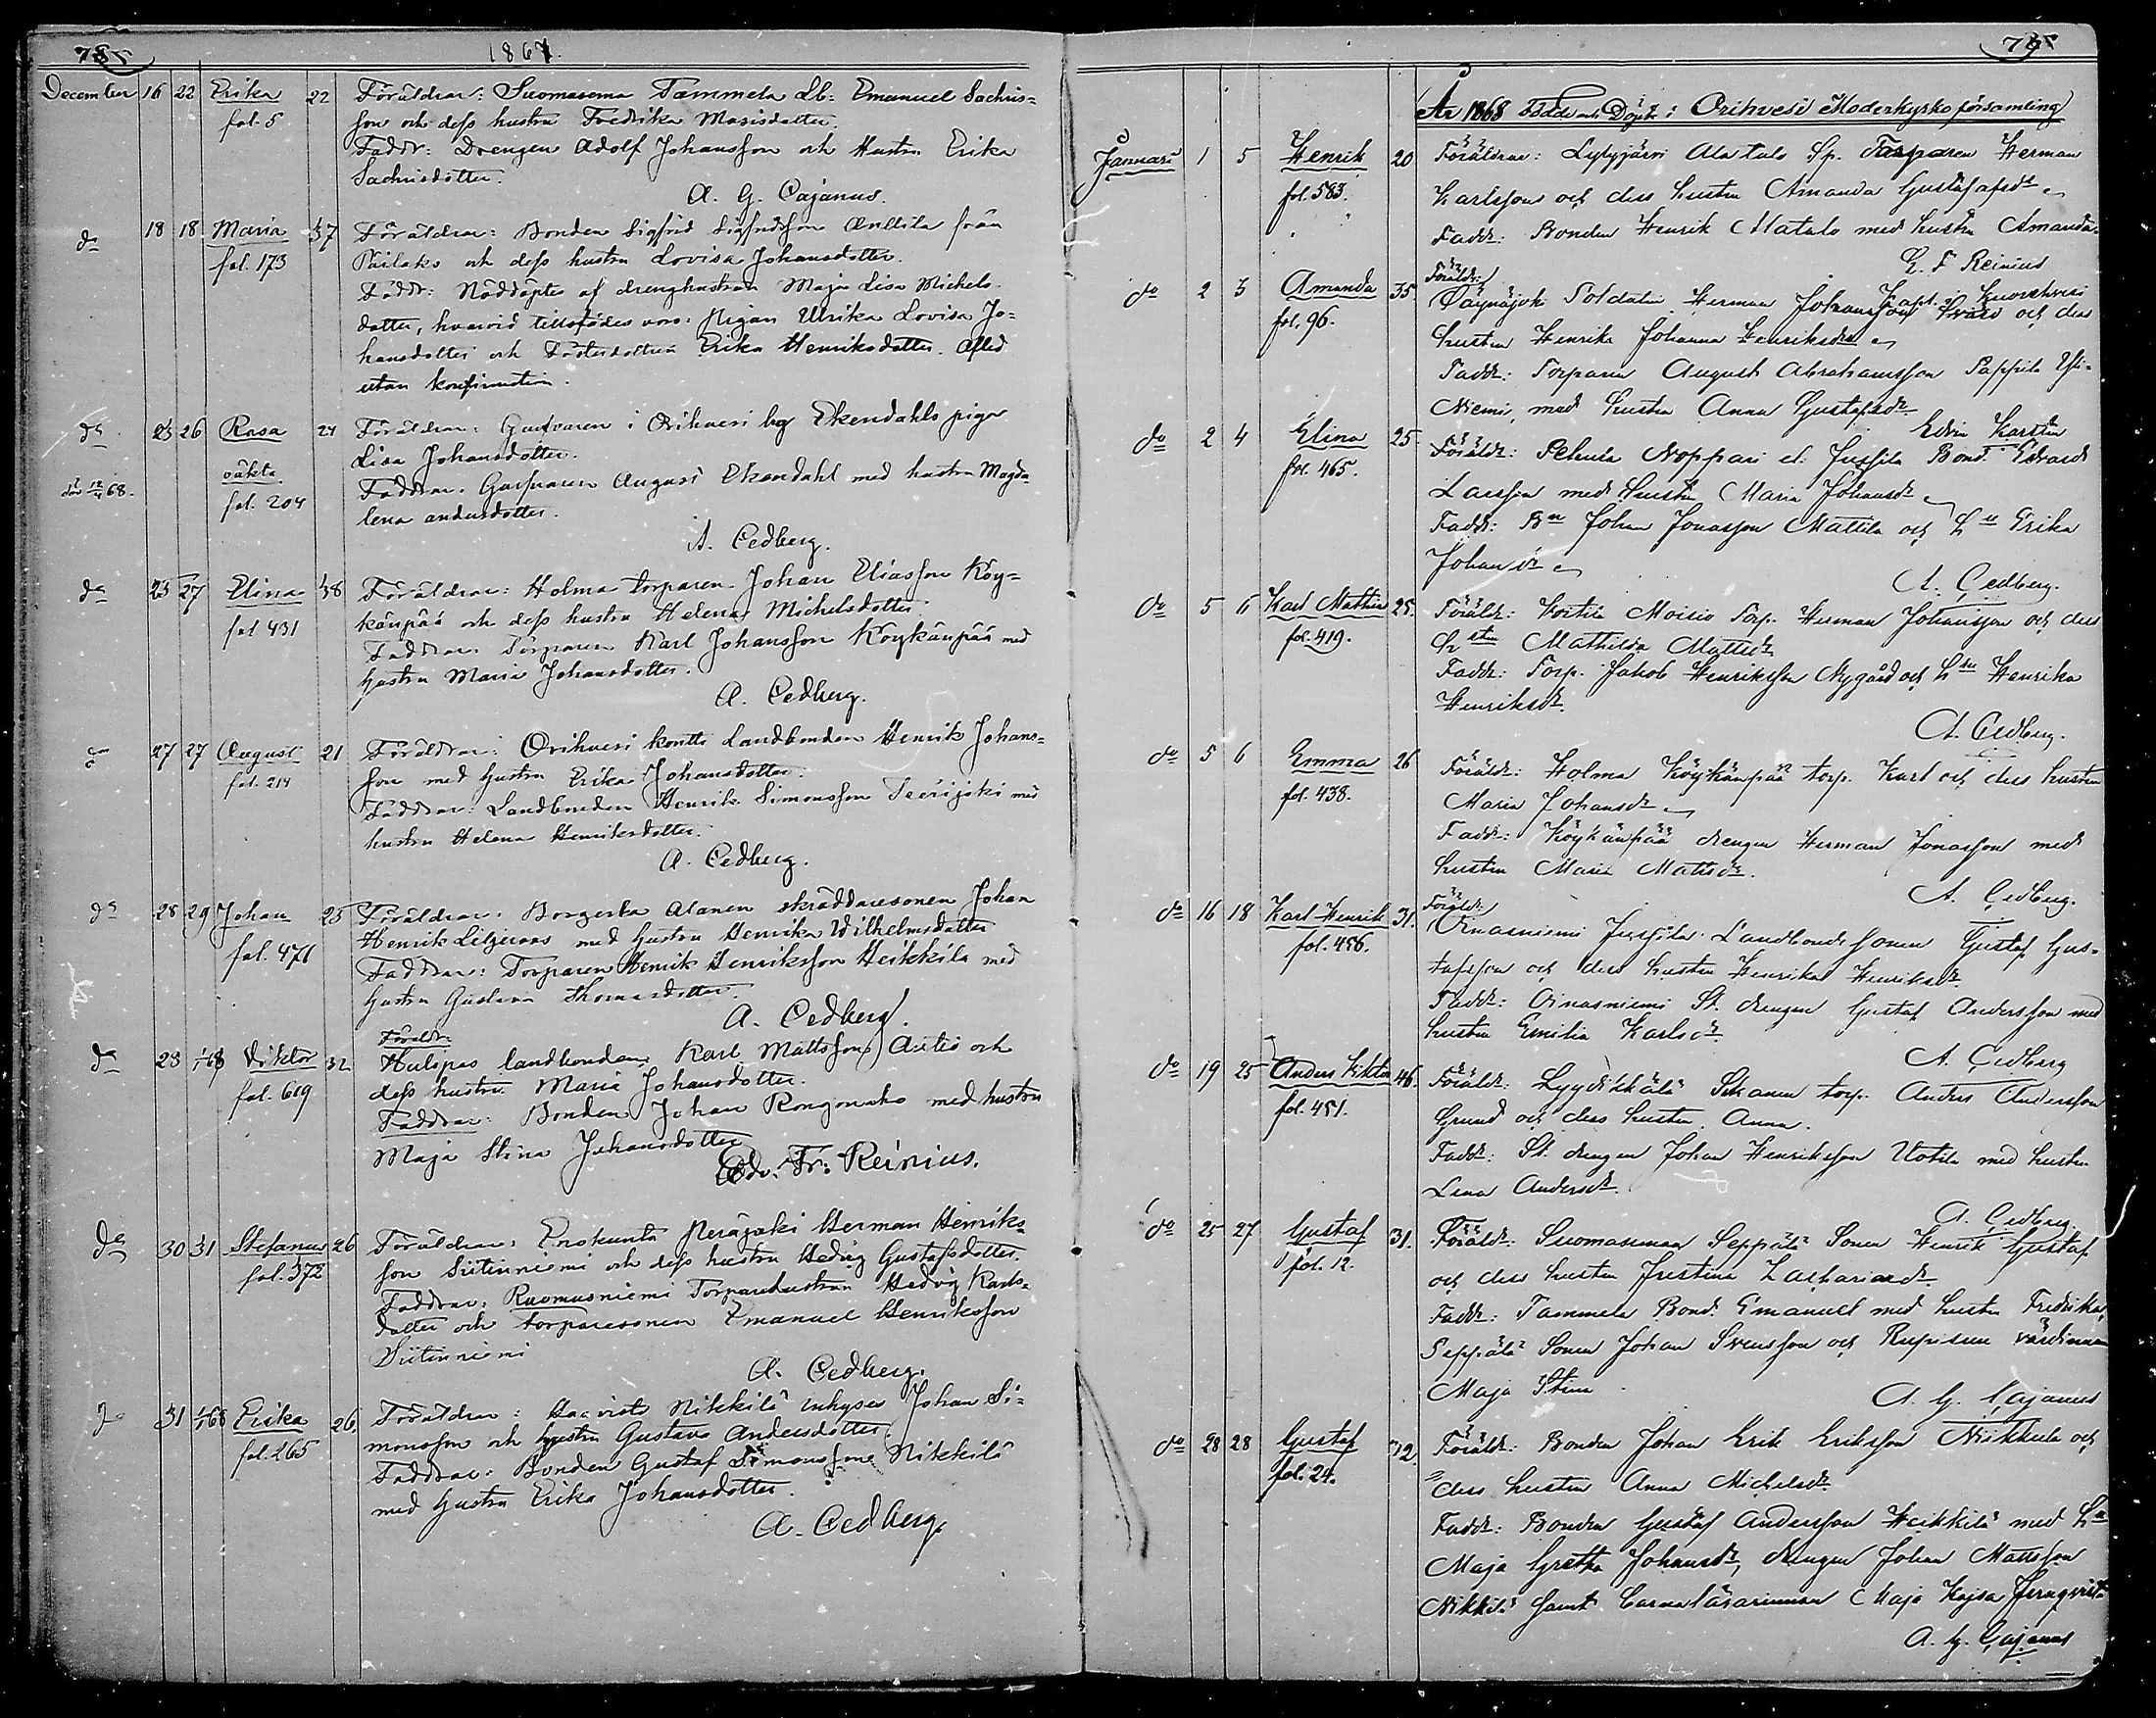 785
1867.
December 16 22 Erika 22 Föräldrar: Suomasema Tammela Lb: Emanuel Sachris=
fol. 5 son och dess hustru Fredrika Mariadotter.
Faddr: Drengen Adolf Johansson och Hustru Erika
Sachrisdotter.
A. G. Cajanus.
do 18 18 Maria 37 Föräldrar: Bonden Sigfrid Sigfridsson Anttila från
fol. 173 Päilaks och dess hustru Lovisa Johansdotter.
Faddr: Nöddöptes af drenghustrun Maja Lisa Michels
dotter, hvarvid tillstädes voro: Pigan Ulrika Lovisa Jo=
hansdotter och Fosterdottren Erika Henriksdotter. Afled
utan konfirmation.
do 23 26 Rosa 24 Föräldrar: Garfvaren i Orihvesi by Ekendahls piga
oäkta Lisa Johansdotter.
död 12/4 68. fol. 204 Faddrar: Garfvaren August Ekendahl med hustru Magda
lena andersdotter.
A. Cedberg.
do 23 27 Elina 38 Föräldrar: Holma torparen Johan Eliasson Köy=
fol 431 känpää och dess hustru Helena Michelsdotter
Faddrar Torparen Karl Johansson Köykänpää med
hustru Maria Johansdotter.
A. Cedberg.
do 27 27 August 21 Föräldrar: Orihvesi kontti Landbonden Henrik Johans=
fol. 214 son med hustru Erika Johansdotter.
Faddrar: Landbonden Henrik Simonsson Teerijoki med
hustru Helena Henriksdotter.
A. Cedberg.
do 28 29 Johan 25 Föräldrar: Borgerla Alanen skräddaresonen Johan
fol. 471 Henrik Liljeroos med hustru Henrika Wilhelmsdotter
Faddrar: Torparen Henrik Henriksson Heikkilä med
hustru Gustava Thomasdotter.
A. Cedberg.
Föräldr:
do 28 1/1 68 Viktor 32 landbonden Karl Mattsson Aitio och
fol. 619 dess hustru Maria Johansdotter.
Faddrar: Bonden Johan Rongonaho med hustru
Maja Stina Johansdotter
Edv. Fr: Reinius.
do 30 31 Stefanus 26 Föräldrar: Eräkunta Peräjoki Herman Henriks=
fol. 372 son Siitinniemi och dess hustru Hedvig Gustafsdotter.
Faddrar: Ruomusniemi Torparehustrun Hedvig Karls=
dotter och torparesonen Emanuel Henriksson
Siitinniemi
A. Cedberg.
do 31 1/1 68 Erika 26. Föräldrar: Haavisto Nikkilä inhyses Johan Si=
fol. 265 monsson och hustru Gustava Andersdotter.
Faddrar: Bonden Gustaf Simonsson Nikkilä
med hustru Erika Johansdotter.
A. Cedberg.
795
År 1868 Födde och Döpte i Orihvesi Moderkyrko församling
Januari 1 5 Henrik 20 Föräldrar: Lylyjärvi Alatalo Sp. Torparen Herman
fol. 583. Karlsson och dess hustru Amanda Gustafsdr
Faddr: Bonden Henrik Matalo med hustru Amanda
E. F Reinius
Kapl. i Kuorehvesi
Föräldr:
do 2 3 Amanda 35. Päynäjoki Soldaten Herman Johansson Svärd och dess
fol. 96. hustru Henrika Johanna Henriksdr
Faddr: Torparen August Abrahamsson Pappila Yli-
Niemi, med hustru Anna Gustafsdr
Edvin Karsten
do 2 4 Elina 25. Föräldr: Pehula Noppari el. Jussila Bond. Edvard
fol. 465. Larsson med hustru Maria Johansdr
Faddr: Bn Johan Jonasson Mattila och hu Erika
Johansdr
A. Cedberg.
do 5 6 Karl Mathias 25. Föräldr: Torp. Herman Johansson och dess
fol. 419. hstru Mathilda Mattsdr
Faddr: Torp. Jakob Henriksson Nygård och hstru Henrika
Henriksdr.
A. Cedberg.
do 5 6 Emma 26 Föräldr: Holma Köykänpää torp. Karl och dess hustru
fol. 438. Maria Johansdr
Faddr: Köykänpää drengen Herman Jonasson med
hustru Maria Mattsdr.
A. Cedberg.
Föräldr:
do 16 18 Karl Henrik 31. Oinasniemi Jussila Landbondesonen Gustaf Gus-
fol. 456. tafsson och dess hustru Henrika Henriksdr
Faddr: Oinasniemi St. drengen Gustaf Andersson med
hustru Emilia Karlsdr
A. Cedberg
do 19 25 Anders Viktor 46. Föräldr: Lyydikkälä torp. Anders Andersson
fol. 451. Grund och dess hustru Anna.
Faddr: St. drengen Johan Henriksson Uotila med hustru
Lena Andersdr.
A. Cedberg.
do 25 27 Gustaf 31. Föräldr: Suomaseman Seppälä Sonen Henrik Gustaf
fol. 12. och dess hustru Justina Zachariaedr
Faddr: Tammela Bond. Emanuel med hustru Fredrika,
Seppälä Sonen Johan Svensson och värdinnan
Maja Stina
A. G. Cajanus
do 28 28 Gustaf 32. Föräldr: Bonden Johan Erik Eriksson Nikkila och
fol. 24. dess hustru Anna Michelsdr
Faddr: Bonden Gustaf Andersson Heikkilä med hu
Maja Gretha Johansdr, drengen Johan Mattsson
Nikkilä samt barnalärarinnan Maja Kajsa
A. G. Cajanus